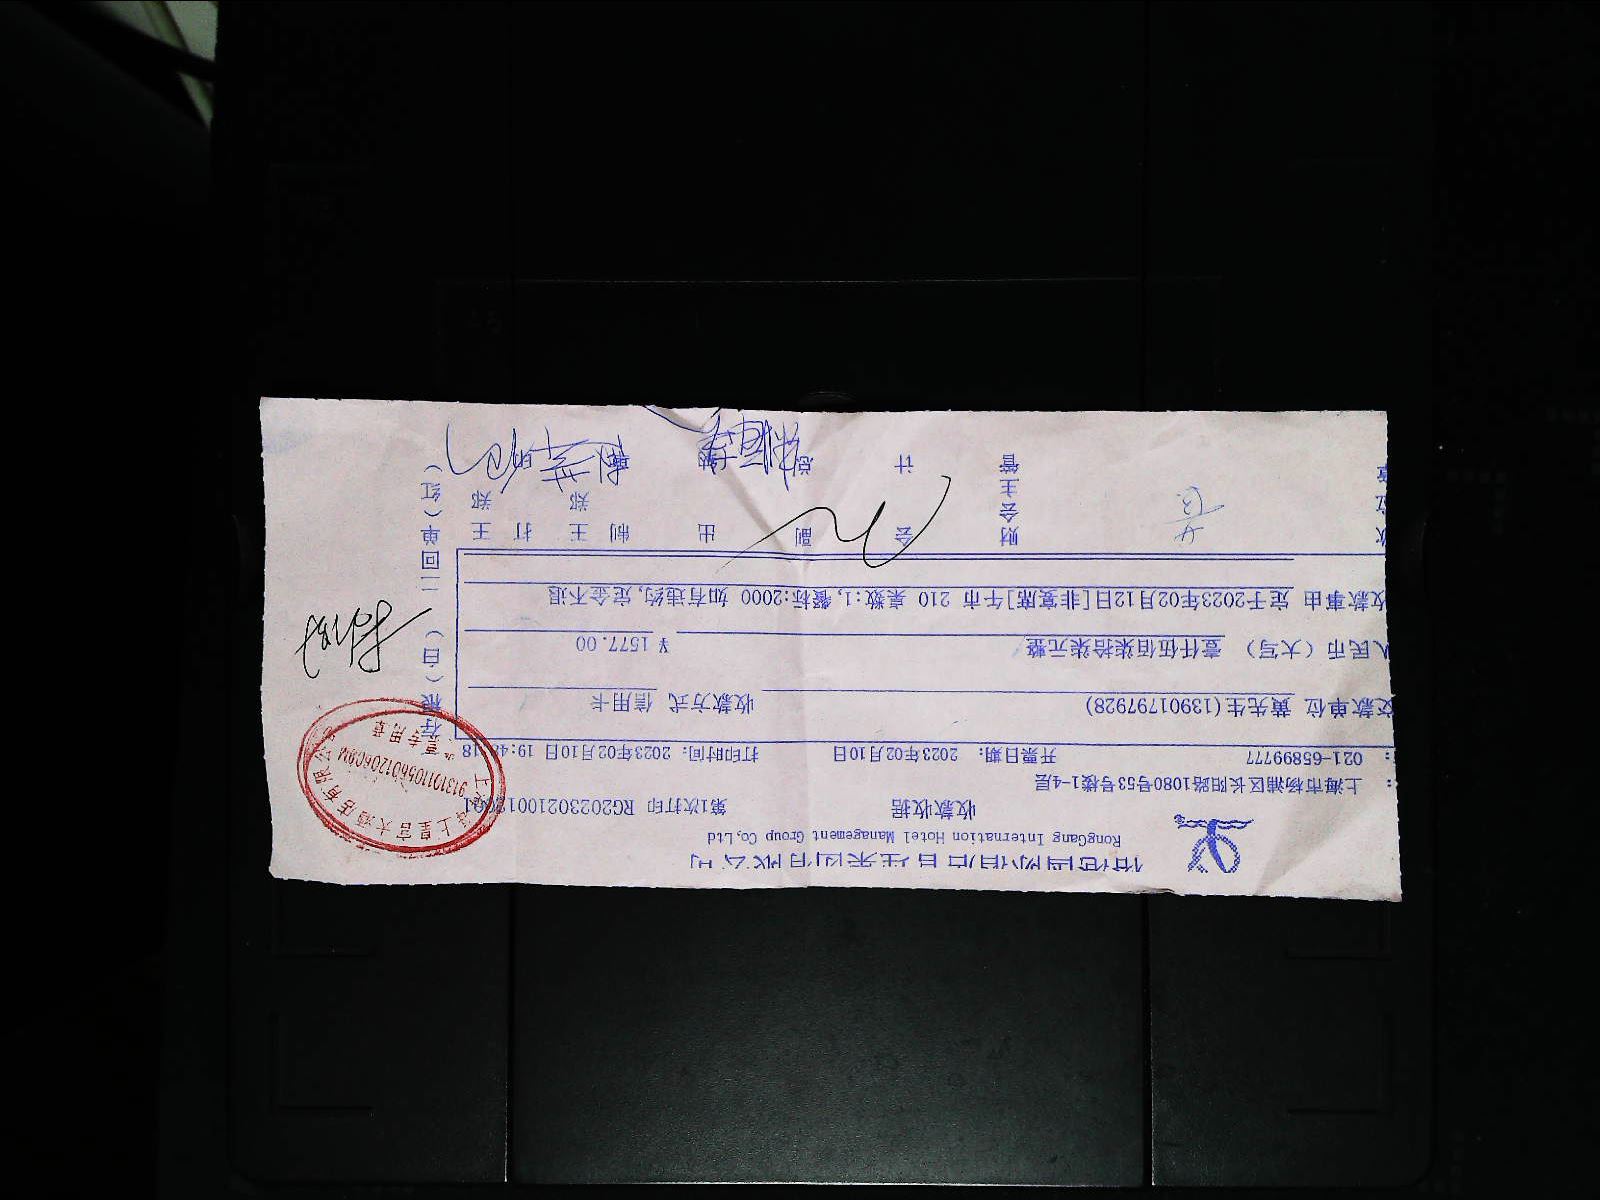 RongGang Internation Hotel Management Group Co,Ltd
收款收据
第1次打印 RG20230210012001
: 上海市杨浦区长阳路1080号53号楼1-4层
: 021-65899777 开票日期: 2023年02月10日 打印时间: 2023年02月10日 19:48:18
交款单位 黄先生(13901797928) 收款方式 信用卡
人民币(大写) 壹仟伍佰柒拾柒元整 ¥ 1577.00
收款事由 定于2023年02月12日[非宴席]午市 210 桌数:1,餐标:2000 如有违约,定金不退
财会主管 会计 副总 出 制 王郑 打印 王郑
存根(白) 二回单(红)
上海上皇宫大酒店有限公司
91310110560120609M
发票专用章